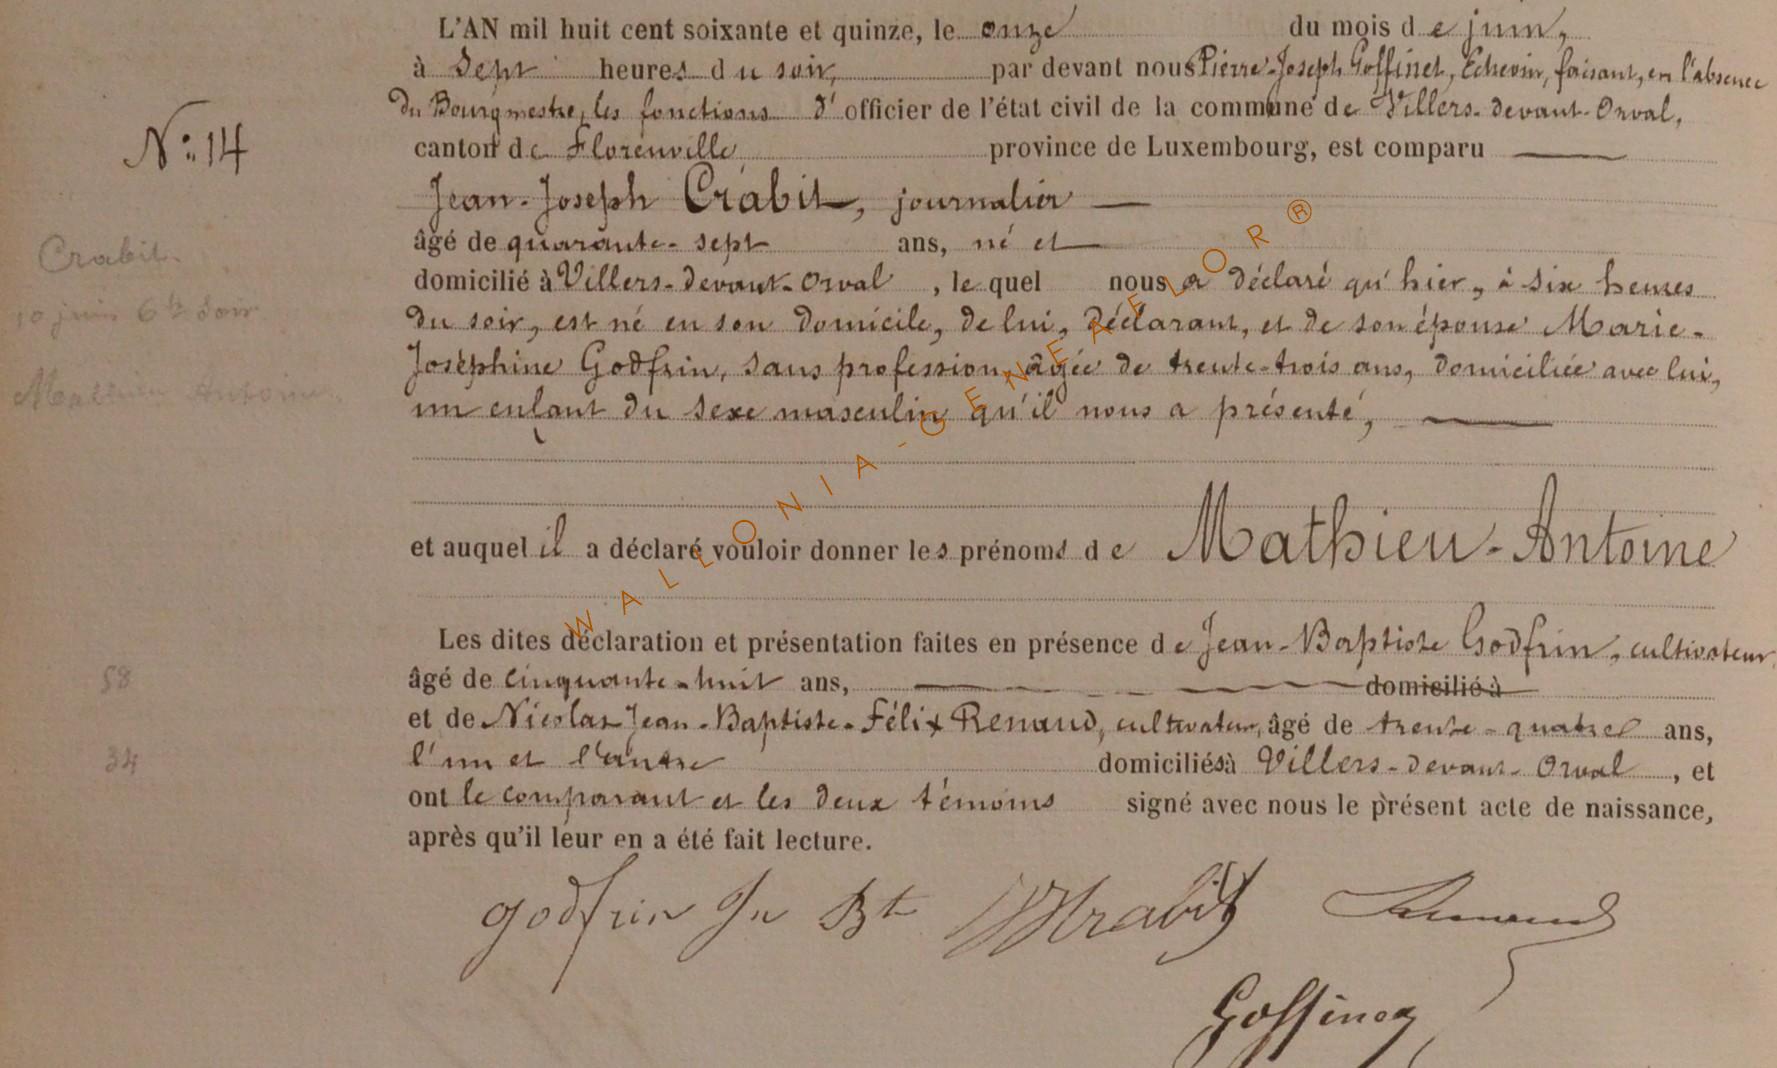 L'AN mil huit cent soixante et quinze, le onze du mois de juin,
à sept heures du soir, par devant nous Pierre-Joseph Goffinet, Echevin, faisant, en l'absence
du Bourgmestre, les fonctions d'officier de l'état civil de la commune de Villers-devant-Orval,
N° 14
canton de Florenville province de Luxembourg, est comparu
Jean-Joseph Crabit, journalier
âgé de quarante-sept ans, né et
Crabit.
domicilié à Villers-devant-Orval, lequel nous a déclaré qu'hier, à six heures
10 juin 6 h soir
du soir, est né en son domicile, de lui, déclarant, et de son épouse Marie-
Joséphine Godfrin, sans profession, âgée de trente-trois ans, domiciliée avec lui,
Mathieu Antoine.
un enfant du sexe masculin qu'il nous a présenté,
et auquel il a déclaré vouloir donner les prénoms de Mathieu-Antoine
Les dites déclaration et présentation faites en présence de Jean-Baptiste Godfrin, cultivateur,
58
âgé de cinquante-huit ans, domicilié à
et de Nicolas Jean-Baptiste-Félix Renaud, cultivateur, âgé de trente-quatre ans,
34
l'un et l'autre domiciliés à Villers-devant-Orval, et
ont le comparant et les deux témoins signé avec nous le présent acte de naissance,
après qu'il leur en a été fait lecture.
godfrin Jn Bt Crabit Renaud
Goffinet
WALLONIA-GENEAFLOR®